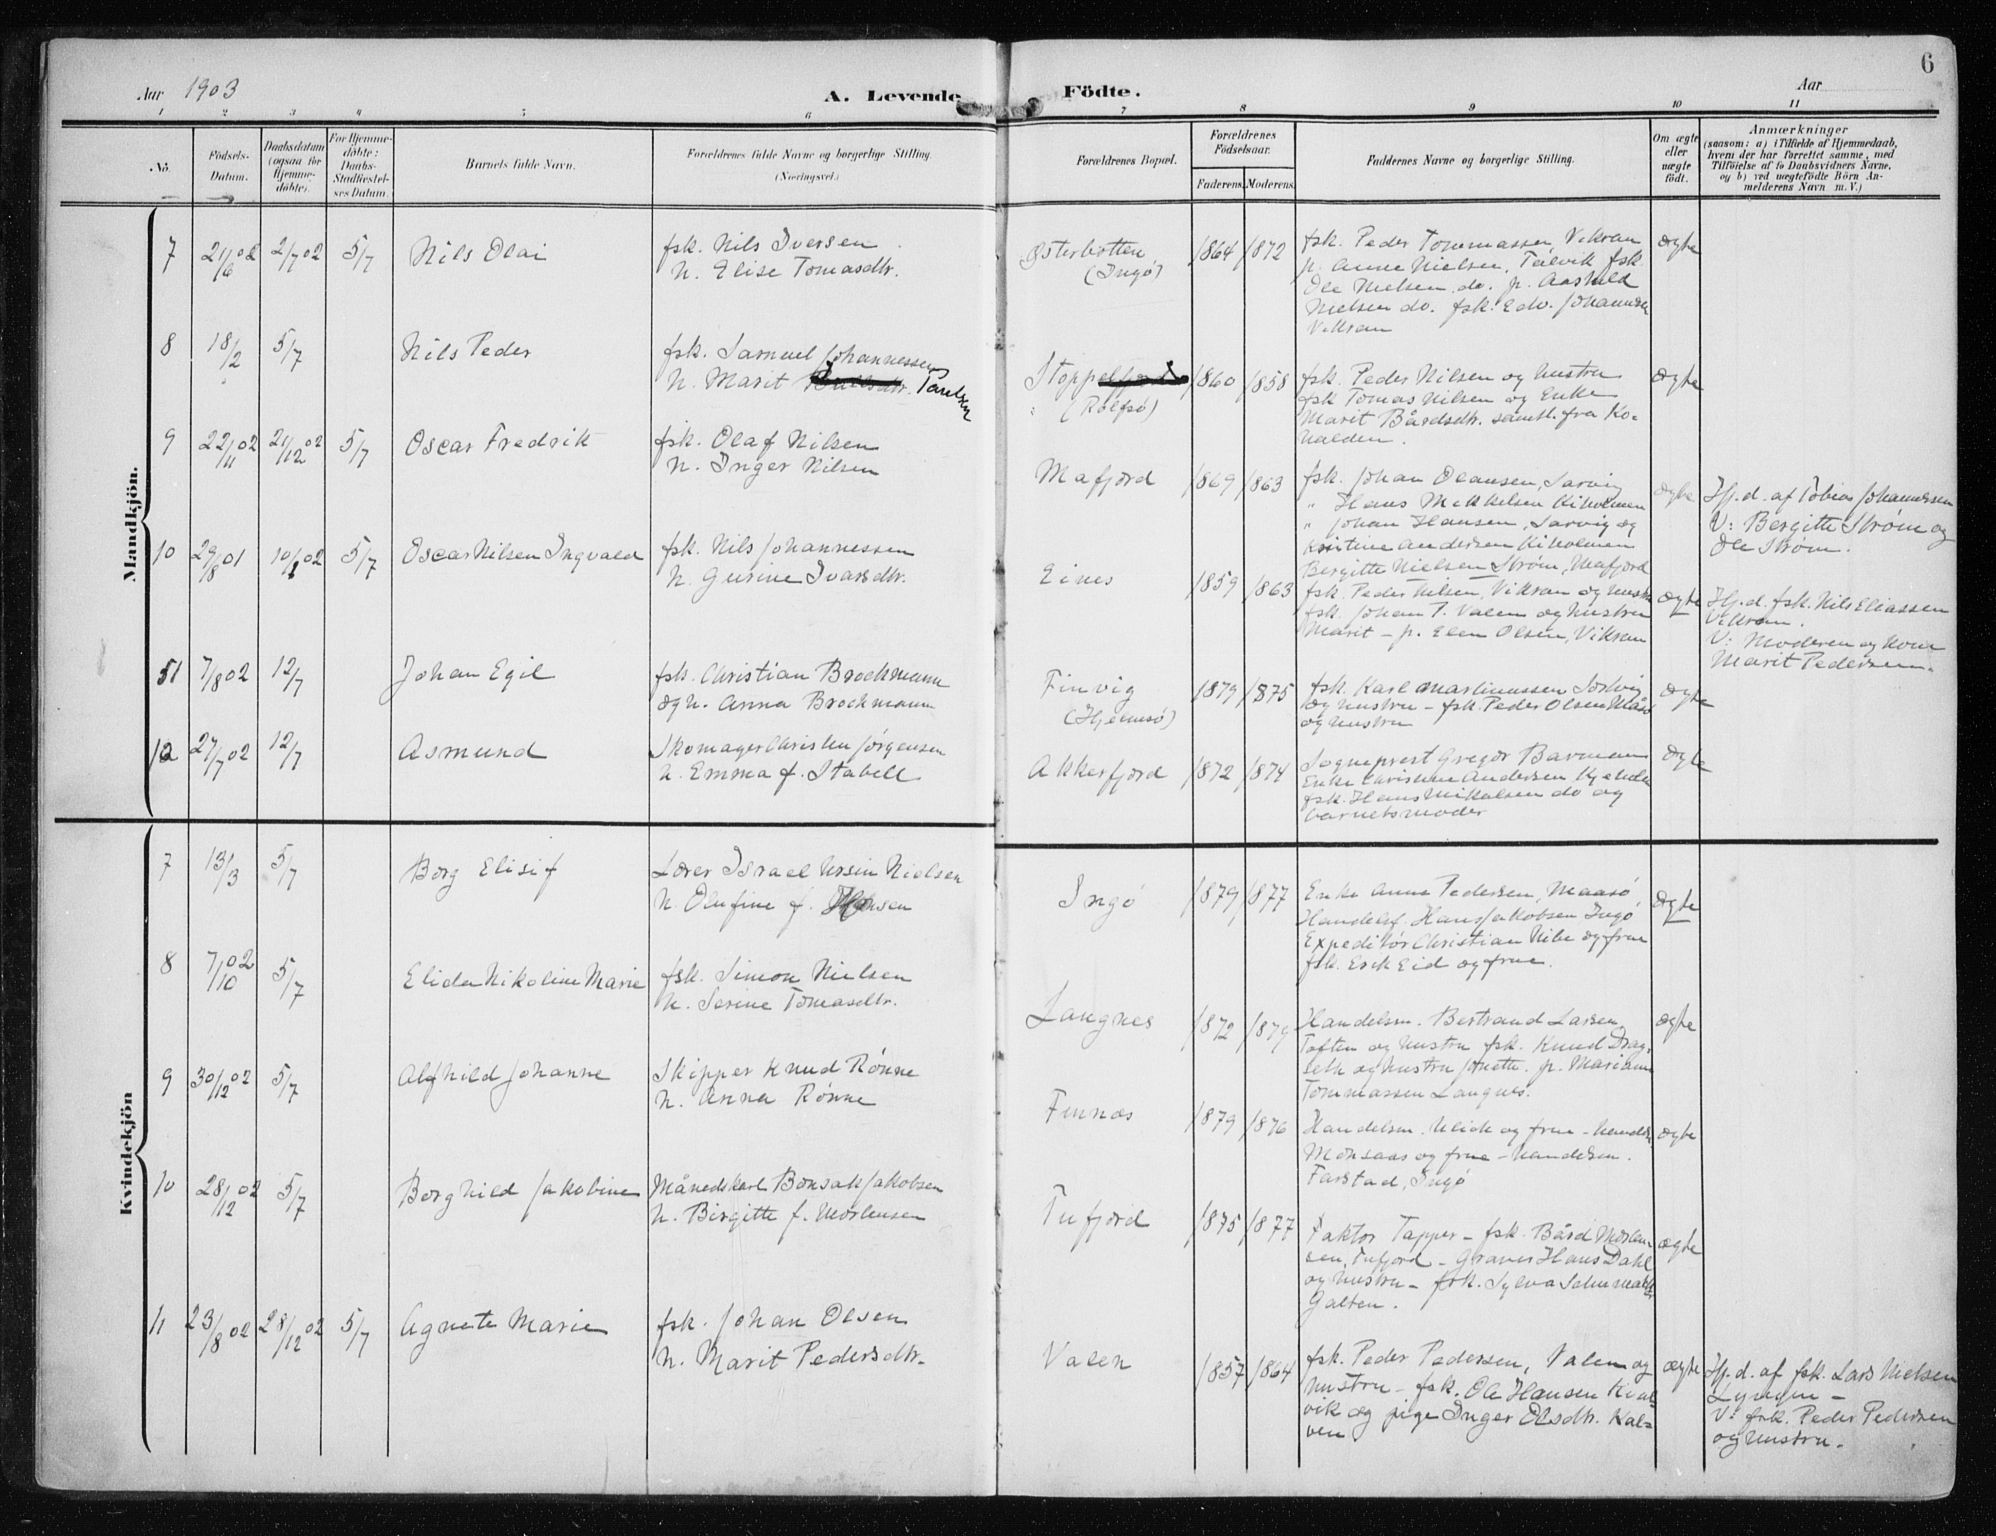 6
Aar 1903
A. Levende
Födte.
Aar
1 2 3 4 5 6 7 8 9 10 11
No.
Födsels-Datum.
Daabsdatum (ogsaa for Hjemme-döbte).
For Hjemme-döbte: Daabs-Stadfæstel-ses Datum.
Barnets fulde Navn.
Forældrenes fulde Navne og borgerlige Stilling.
(Næringsvei.)
Forældrenes Bopæl.
Forældrenes Födselsaar.
Faderens. Moderens.
Faddernes Navne og borgerlige Stilling.
Om ægte eller uægte födt.
Anmærkninger
(saasom: a) i Tilfælde af Hjemmedaab,
hvem der har forrettet samme, med
Tilföielse af to Daabsvidners Navne,
og b) ved uægtefödte Börn An-
melderens Navn m. V.)
Mandkjön.
7 21/6 02 2/7 02 5/7 Nils Olai
fsk. Nils Iversen
h. Elise Tomasdtr.
Østerbotten
(Ingö)
1864 1872
fsk. Peder Tommassen, Vikran
p. Anne Nielsen, Talvik fsk.
Ole Nielsen do. p. Aashild
Nielsen do. fsk. Edv. Johannesen
Vikran
ægte
8 18/2 5/7 Nils Peder
fsk. Samuel Johannessen
h. Marit Paulsen
Stoppel
(Rolfsö)
1860 1858
fsk. Peder Nilsen og hustru
fsk Tomas Nilsen og Enke
Marit Bårdsdtr. samtl. fra Ko-
halden.
ægte
9 22/11 02 21/12 02 5/7 Oscar Fredrik
fsk. Olaf Nilsen
h. Inger Nilsen
Mafjord
1869 1863
fsk. Johan Olausen, Sarvig
" Hans Mikkelsen Kiholmen
" Johan Hansen, Sarvig og
Kristine Andersen Kiholmen
Bergitte Nielsen Strøm, Mafjord
ægte
Hj.d. af Tobias Johannessen
V: Bergitte Strøm og
Ole Strøm.
10 29/8 01 10/1 02 5/7 Oscar Nilsen Ingvald
fsk. Nils Johannessen
h. Gurine Ivarsdtr.
Eines
1859 1863
fsk. Peder Nilsen, Vikran og hustru
fsk. Johan T. Valen og hustru
Marit - p. Elen Olsen, Vikran
ægte
Hj.d. fsk. Nils Eliassen
Vikran.
V: Moderen og kone
Marit Pedersen.
11 7/8 02 12/7 Johan Egil
fsk. Christian Brochmann
og h. Anna Brochmann
Finvig
(Hjelmsö)
1879 1875
fsk. Karl Martinussen
og hustru - fsk. Peder Olsen Måsö
og hustru
ægte
12 27/7 02 12/7 Asmund
Skomager Christen Jørgensen
h. Emma f. Stabell
Akkerfjord
1872 1874
Sogneprest Gregor Barman
Enke Christine Andersen,
fsk. Hans Mikalsen do og
barnets moder
ægte
Kvindekjön
7 13/3 5/7 Borg Elisif
Lærer Israel Ursin Nielsen
h. Olufine f. Hansen
Ingö
1879 1877
Enke Anne Pedersen, Maasö
Handelsf. Hans Jakobsen Ingö
Expeditör Christian Nibe og frue
fsk. Erik Eid og frue.
ægte
8 7/10 02 5/7 Elida Nikoline Marie
fsk. Simon Nielsen
h. Serine Tomasdtr.
Langnes
1872 1879
Handelsm. Bertrand Larsen
Toften og hustru fsk. Knud Drag-
seth og hustru Anette. p. Mariane
Tommassen Langnes.
ægte
9 30/12 02 5/7 Alfhild Johanne
Skipper Knud Rönne
h. Anna Rönne
Finnæs
1879 1876
Handelsm. Ulich og frue - handelsm.
Monsaas og frue - handelsm.
Farstad, Ingö
ægte
10 28/12 02 5/7 Borghild Jakobine
Månedskarl Bonsak Jakobsen
h. Birgitte f. Mortensen
Tufjord
1875 1877
Faktor Tapper - fsk. Bård Morten-
sen, Tufjord - Graver Hans Dahl
og hustru - fsk.
Galten.
ægte
11 23/8 02 28/12 02 5/7 Agnete Marie
fsk. Johan Olsen
h. Marit Pedersdtr.
Valen
1857 1864
fsk. Peder Pedersen, Valen og
hustru - fsk. Ole Hansen Kval-
vik og pige Inger Olsdtr. Kal-
ven
ægte
Hj.d. af fsk. Lars Nielsen
Lyngen -
V: fsk. Peder Pedersen
og hustru.